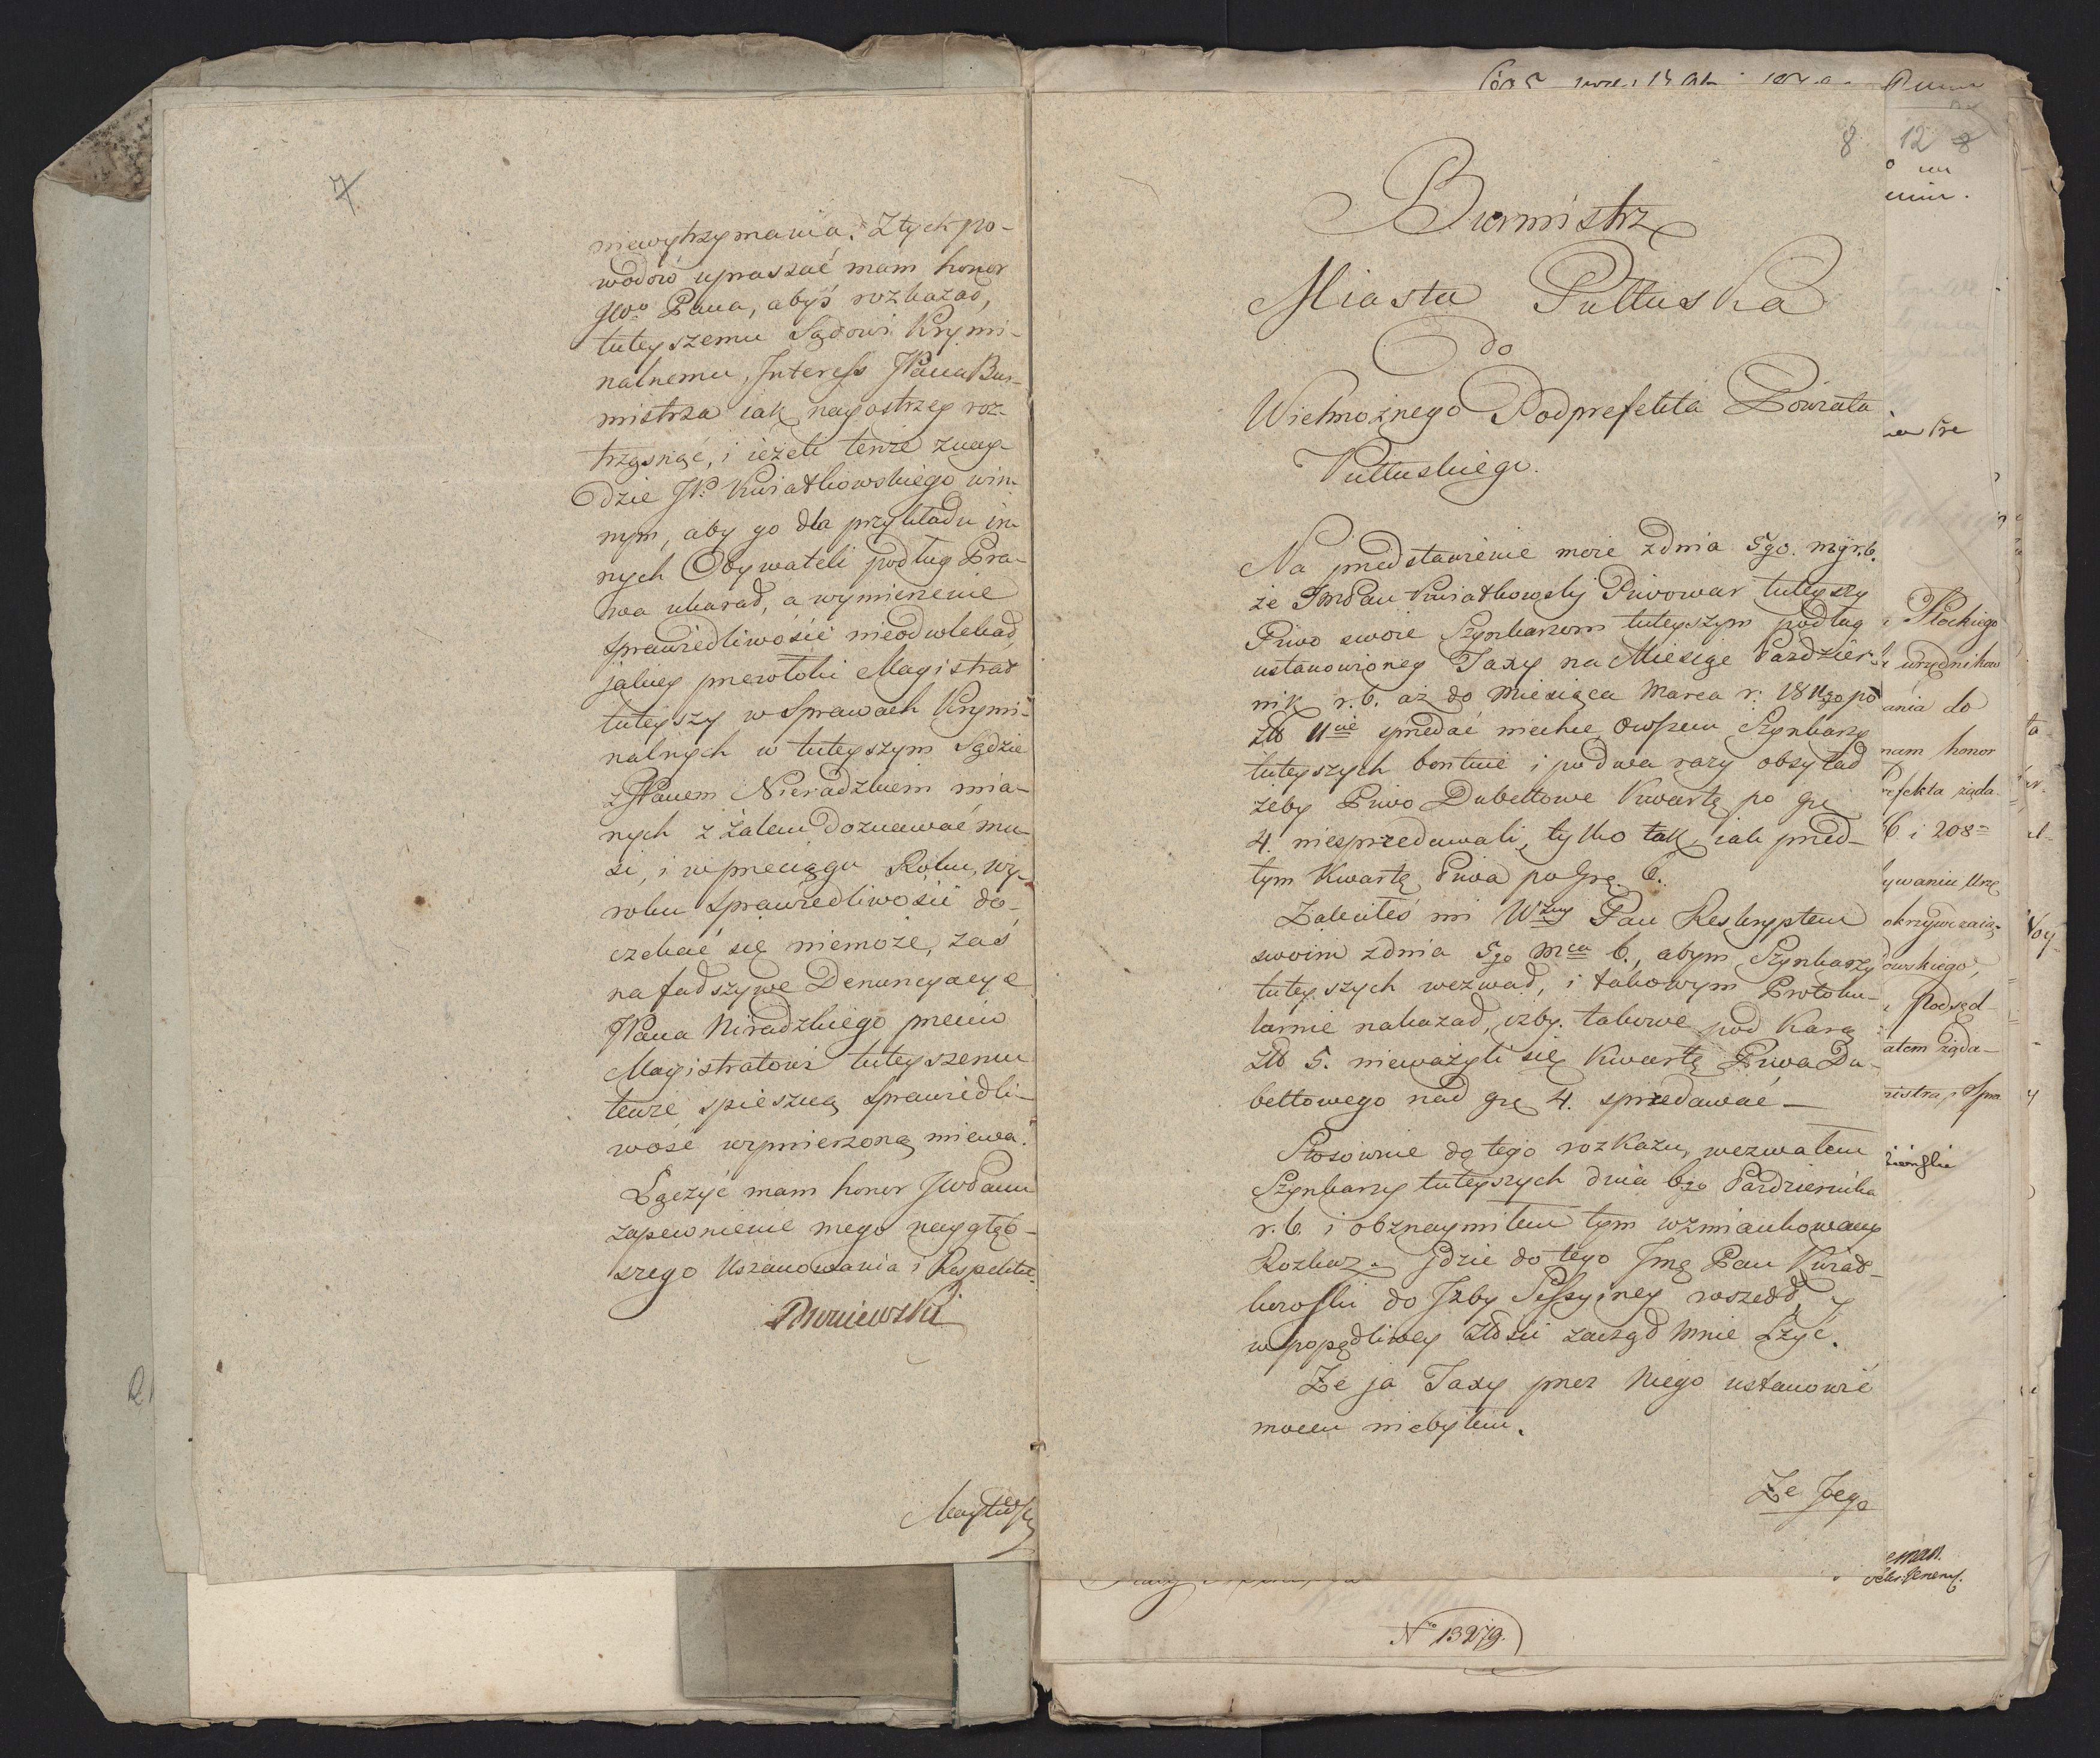 7
niewytrzymania. Z tych po-
wodów upraszać mam honor
JWo Pana, abyś rozkazał,
tuteyszemu Sądowi Krymi-
nalnemu, Interess JPana Bur-
mistrza iak nayostrzey roz-
trząsnąć, i ieżeli tenże znay-
dzie JP. Kwiatkowskiego win-
nym, aby go dla przykładu in-
nych Obywateli podług Pra-
wa ukarał, a wymierzenie
sprawiedliwości nieodwlekał,
jakiey przewłoki Magistrat
tuteyszy w Sprawach Krymi-
nalnych w tuteyszym Sądzie
z JPanem Nieradzkiem mia-
nych z żalem doznawać mu-
si, i w przeciągu Roku, wy-
roku sprawiedliwości do-
czekać się niemoże, zaś
na fałszywe Denuncyacye
JPana Niradzkiego przeciw
Magistratowi tuteyszemu
tenże spieszną sprawiedli-
wość wymierzoną miewa.
Łączyć mam honor JWPanu
zapewnienie mego naygłęb-
szego Uszanowania i Respektu.
8
12 8
Burmistrz
Miasta Pułtuska
do
Wielmożnego Podprefekta Powiatu
Pułtuskiego.
Na przedstawienie moie z dnia 5go. mgr. b.
że JmPan Kwiatkowsky Piwowar tuteyszy
Piwo swoie Szynkarzom tuteyszym podług
ustanowioney Taxy na Miesiąc Paździer-
nik r. b. aż do Miesiąca Marca r: 1811go po
Zł 11cie sprzedać niechce, owszem Szynkarzy
tuteyszych bontuie i podwa razy obsyłał
żeby Piwo Dubeltowe Kwartę po gr.
4. niesprzedawali, tylko tak iak przed-
tym Kwartę Piwa po Gr. 6.
Zaleciłeś mi Wżny Pan Reskryptem
swoim z dnia 5go mca b., abym Szynkarzy
tuteyszych wezwał, i takowym Protoku-
larnie nakazał, iżby takowe pod Karą
Zł 5. nieważyli się Kwartę Piwa Du-
beltowego nad gr. 4. sprzedawać —
Stosownie do tego rozkazu, wezwałem
Szynkarzy tuteyszych dnia 6go Pazdziernika
r. b. i obznaymiłem tym wzmiankowany
Rozkaz. Gdzie do tego Jmć Pan Kwiat-
kowski do Izby Sessyiney wszedł, y
w popędliwey złości zaczął mnie Lżyć.
Że ja Taxy przez Niego ustanowić
mocen niebyłem.
Że Jego
Płockiego
urzędników
ania do
mam honor
refekta żąda
6. i 208
N° 13279.